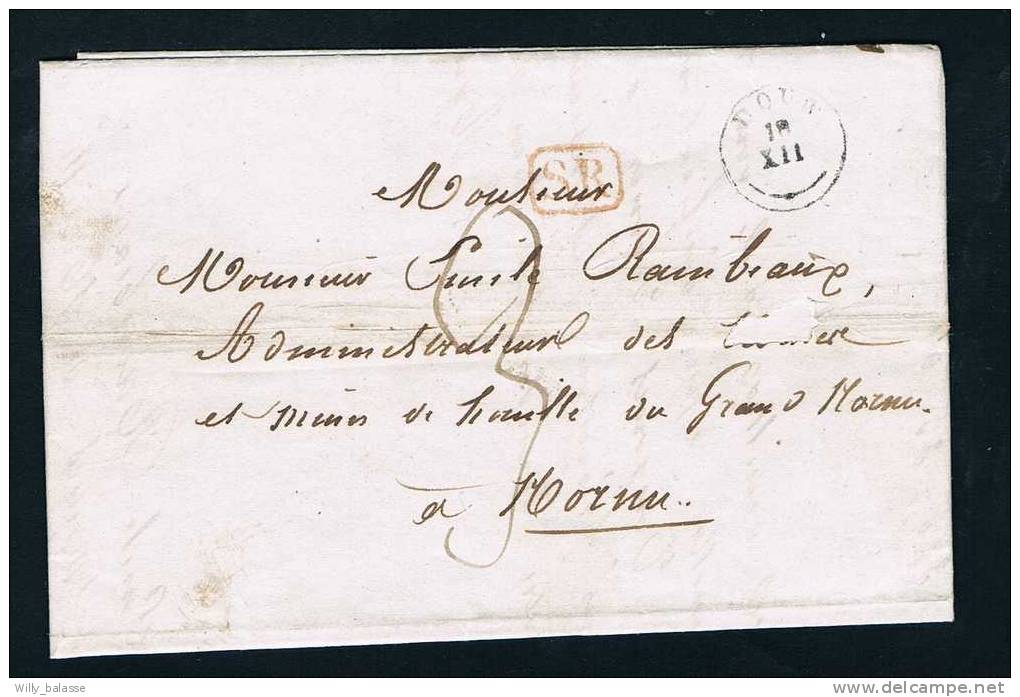 DOUR
18
XII
S R
Monsieur
Monsieur Emile Rainbeaux,
Administrateur des
et mines de houille du Grand Hornu.
à Hornu.
3
Willy_balasse
delcampe.net